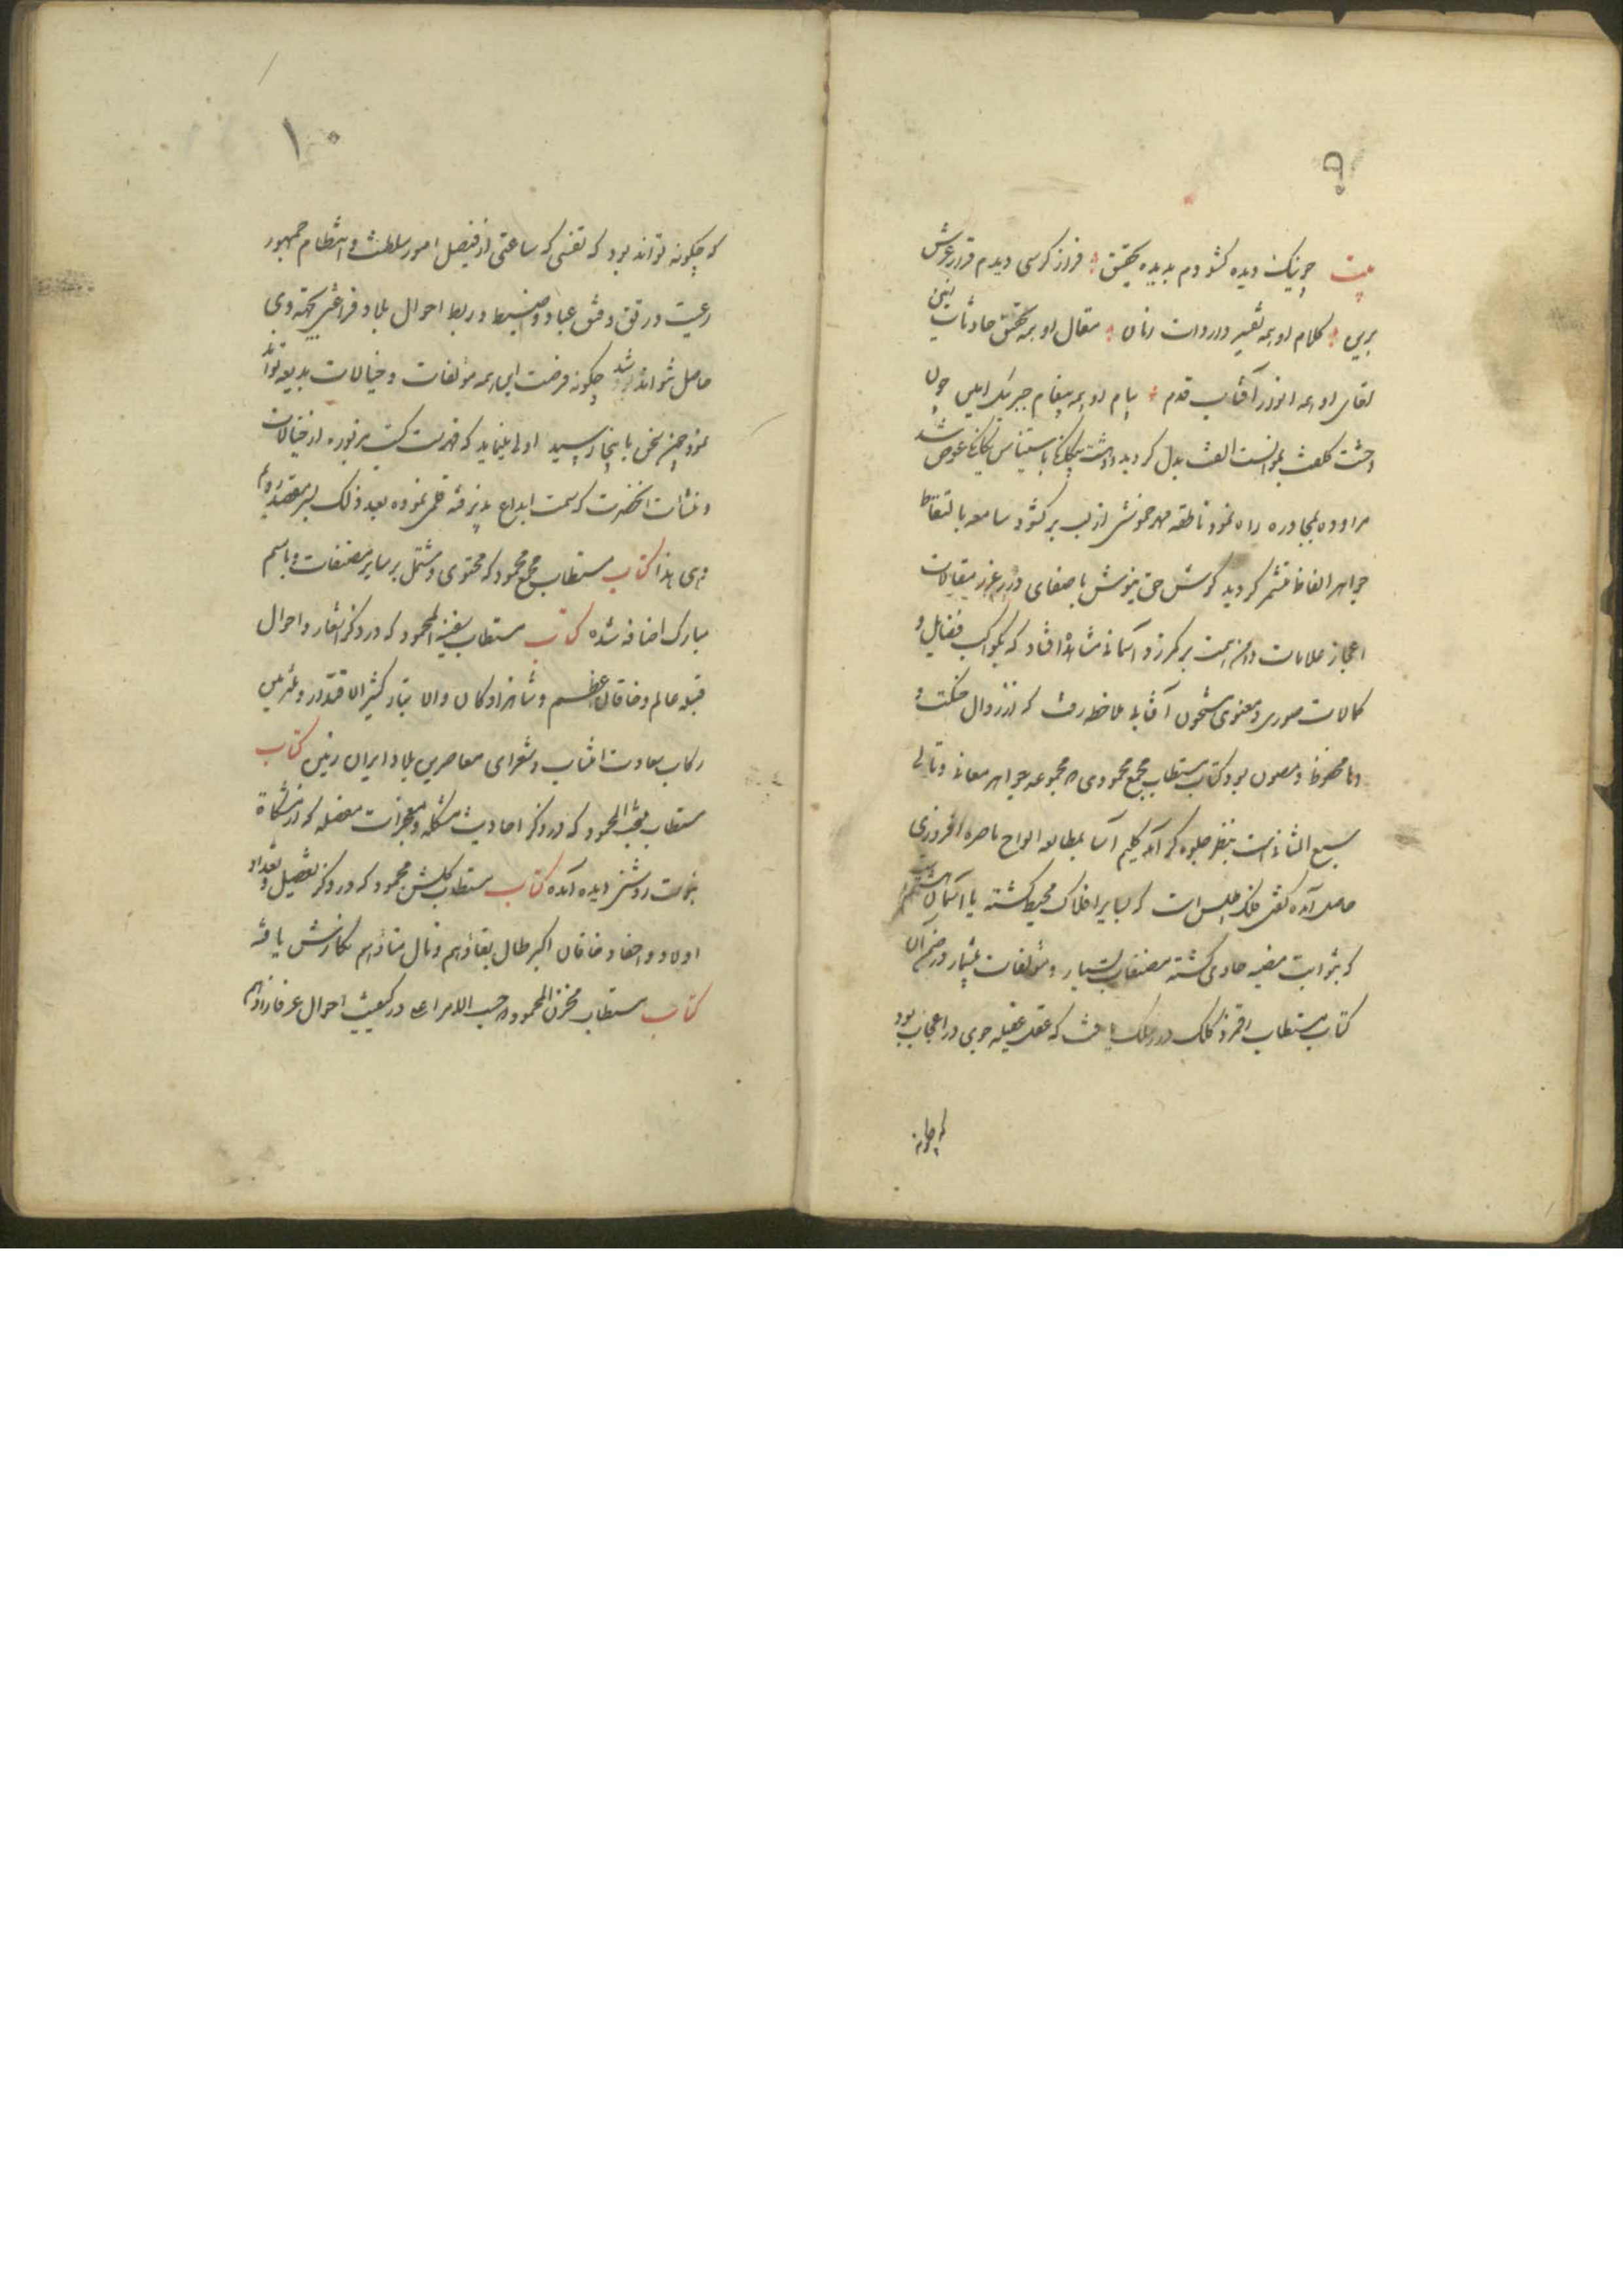 ۹
بیت چو نیک دیده گشودم بدیده تحقیق فراز کرسی دیدم قرار عرش
برین کلام او همه تفسیر واردات زمان مقال او همه تحقیق حادثات زمین
لقای او همه انوار آفتاب قدم پیام او همه پیغام جبرئیل امین چون
وحشت کلفت بموانست الفت بدل کردید و وحشت بیکانکی باستیناس یکانکی عوض شد
مراوده بمحاوره راه نمود ناطقه مهر خموشی از لب برکشود سامعه بالتقاط
جواهر الفاظ مشمر کردید کوش حق نیوش باصغای درر غرر مقالات
اعجاز علامات دامن همت بر کمر زد آسمانی مشاهد افتاد که بکواکب فضایل و
کمالات صوری و معنوی مشحون آفتابی ملاحظه رفت که از زوال
محفوظ و مصون بود کتاب مستطاب مجمع محمودی مجموعه جواهر معانی و تالی
سبع المثانی است بنظر جلوه کر آمد کلیم آسا بمطالعه الواح باصره افروزی
حاصل آمده کفتی فلک اطلس است که بسایر افلاک محیط کشته یا آسمان هشتم است
که بثوابت مضیه حاوی کشته مصنفات بسیار و مؤلفات بیشمار در ضمن آن
کتاب مستطاب رقمزد کلک در سلک یافت که عقل عقیله جوی در اعجاب بود
که چکونه
۱۰
که چکونه تواند بود که نفسی که ساعتی از فیصل امور سلطنت و انتظام جمهور
رعیت و رتق و فتق عباد و ضبط و ربط احوال بلاد فراغتی بجهة وی
حاصل نتواند شد چکونه فرصت این همه مؤلفات و خیالات بدیعه تواند
نمود چون سخن باینجا رسید اولی مینماید که فهرست کتب مزبوره از خیالات
و منشات آنحضرت که سمت ابداع پذیرفته قلمی نموده بعد ذلک بسر مقصد رویم
و هی هذا کتاب مستطاب مجمع محمود که محتوی و مشتمل بر سایر مصنفات و باسم
مبارک اضافه شده کتاب مستطاب سفینة المحمود که در ذکر اشعار و احوال
قبله عالم و خاقان اعظم و شاهزادکان والا تبار کثیر الاقتدار و ملتزمین
رکاب سعادت انتساب و شعرای معاصرین بلاد ایران زمین کتاب
مستطاب منتخب المحمود که در ذکر احادیث مشکله و معجزات معضله که از مشکاة
نبوت روشنی دیده آمده کتاب مستطاب کلشن محمود که در ذکر تفصیل و تعداد
اولاد و احفاد خاقان اکبر طال بقاؤهم و نال مناؤهم نکارش یافته
کتاب مستطاب مخزن المحمود حسب الامر در کیفیت احوال عرفا